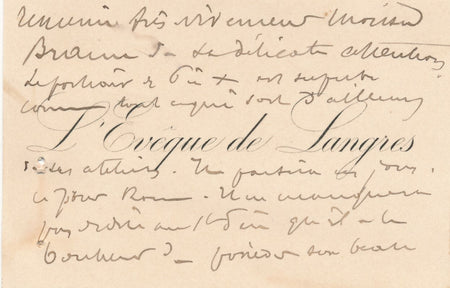 remercie très vivement Monsieur
Braun de sa délicate attention.
Le portrait de est superbe
comme tout ce qui sort d'ailleurs
L'Evêque de Langres
de ses ateliers. Il ces jours-
ci pour Rome. Il ne manquera
pas de dire au qu'il a le
bonheur de posséder son beau